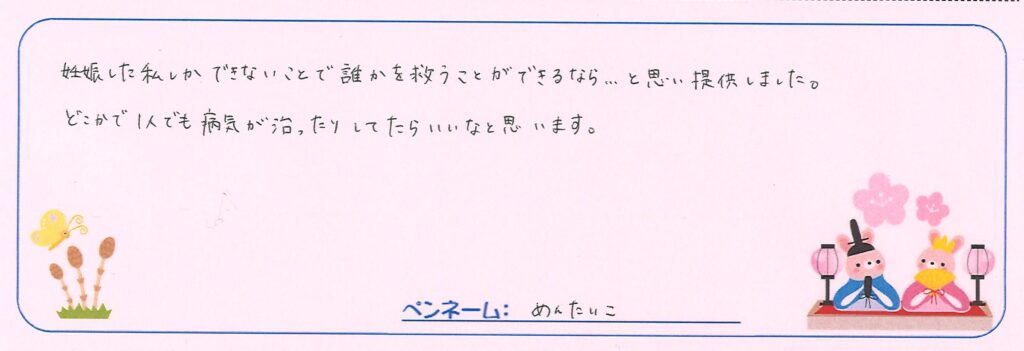 妊娠した私しかできないことで誰かを救うことができるなら…と思い提供しました。
どこかで1人でも病気が治ったりしてたらいいなと思います。
ペンネーム: めんたいこ